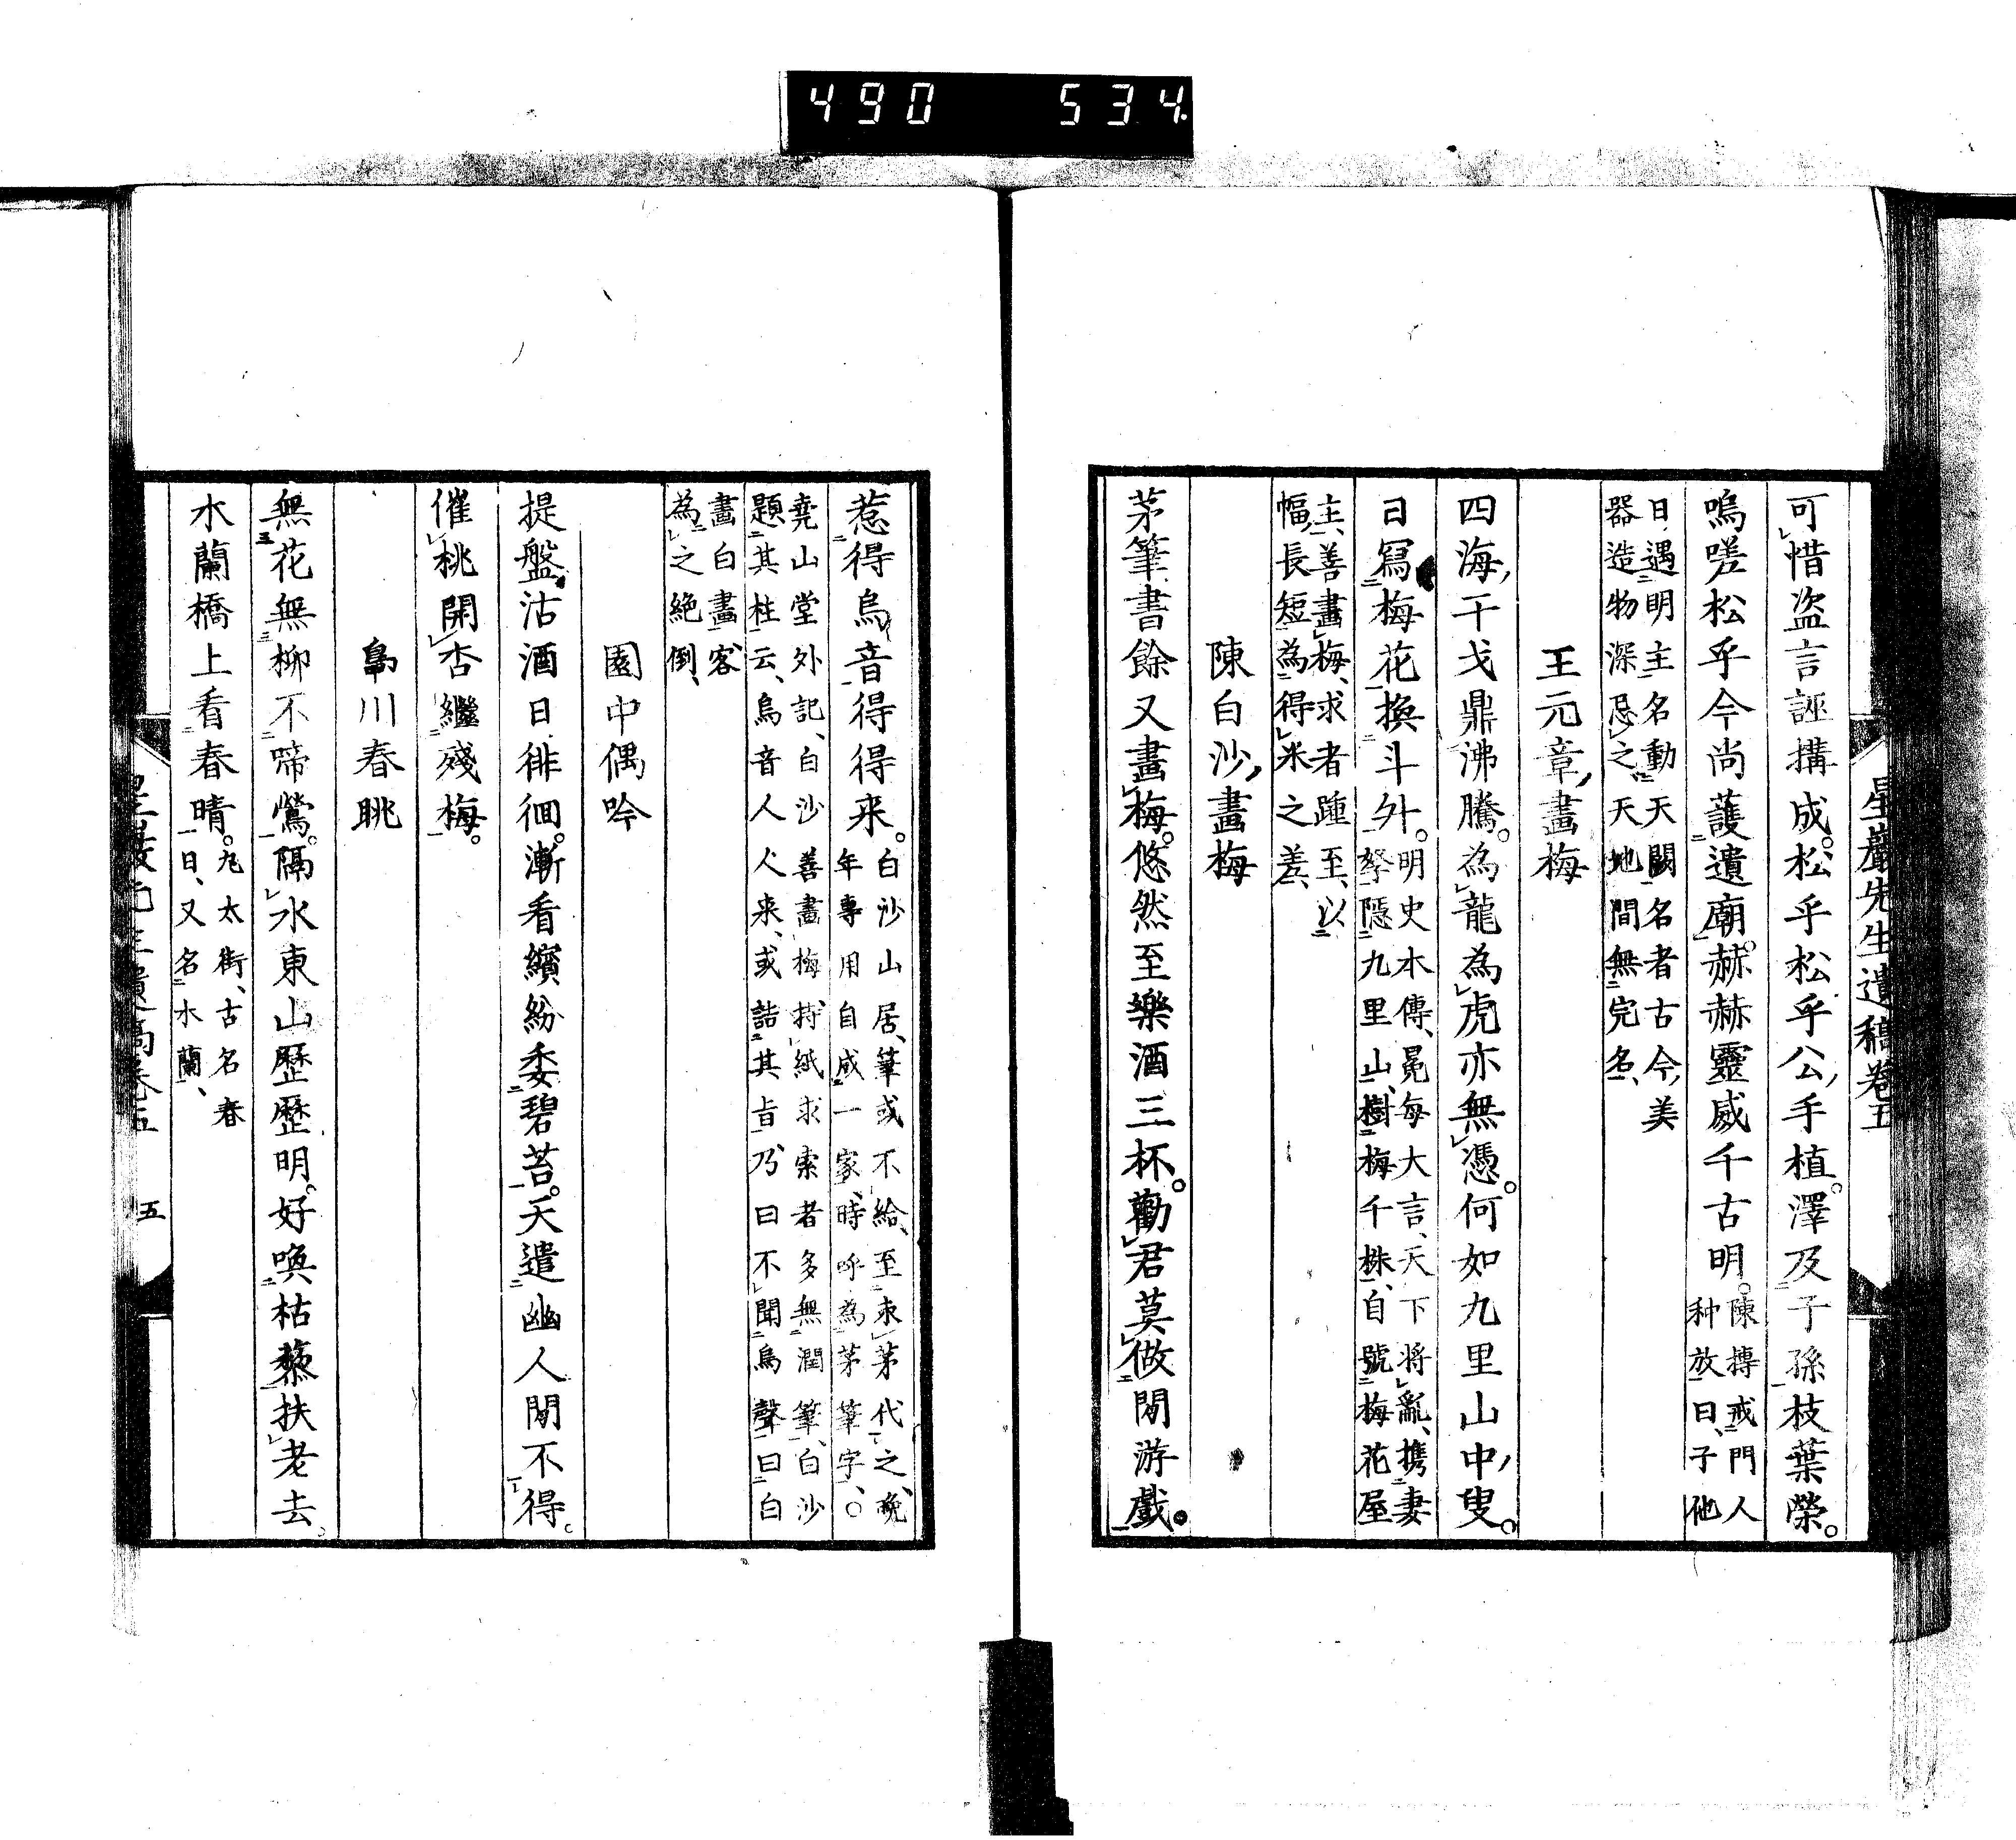 490 534
星巖先生遺稿卷五
可惜盗言誣搆成松乎松乎公手植澤及子孫枝葉榮
嗚嗟松乎今尚護遺廟赫赫靈威千古明陳摶戒門人种放曰子他
日遇明主名動天闕名者古今美器造物深忌之天地間無完名
王元章畫梅
四海干戈鼎沸騰為龍為虎亦無憑何如九里山中叟
日寫梅花換斗外明史本傳冕每大言天下將亂携妻孥隱九里山樹梅千株自號梅花屋
主善畫梅求者踵至以幅長短為得米之差
陳白沙畫梅
茅筆書餘又畫梅悠然至樂酒三杯勸君莫做閒游戲
惹得烏音得得来白沙山居筆或不給至束茅代之晚年專用自成一家時呼為茅筆字○
堯山堂外記白沙善畫梅持紙求索者多無潤筆白沙題其柱云烏音人人来或詰其旨乃曰不聞烏聲曰白
畫白畫客為之絶倒
園中偶吟
提盤沽酒日徘徊漸看繽紛委碧苔天遣幽人閒不得
催桃開杏繼殘梅
鳧川春眺
無花無柳不啼鶯隔水東山歷歷明好喚枯藜扶老去
水蘭橋上看春晴九太街古名春日又名水蘭
五